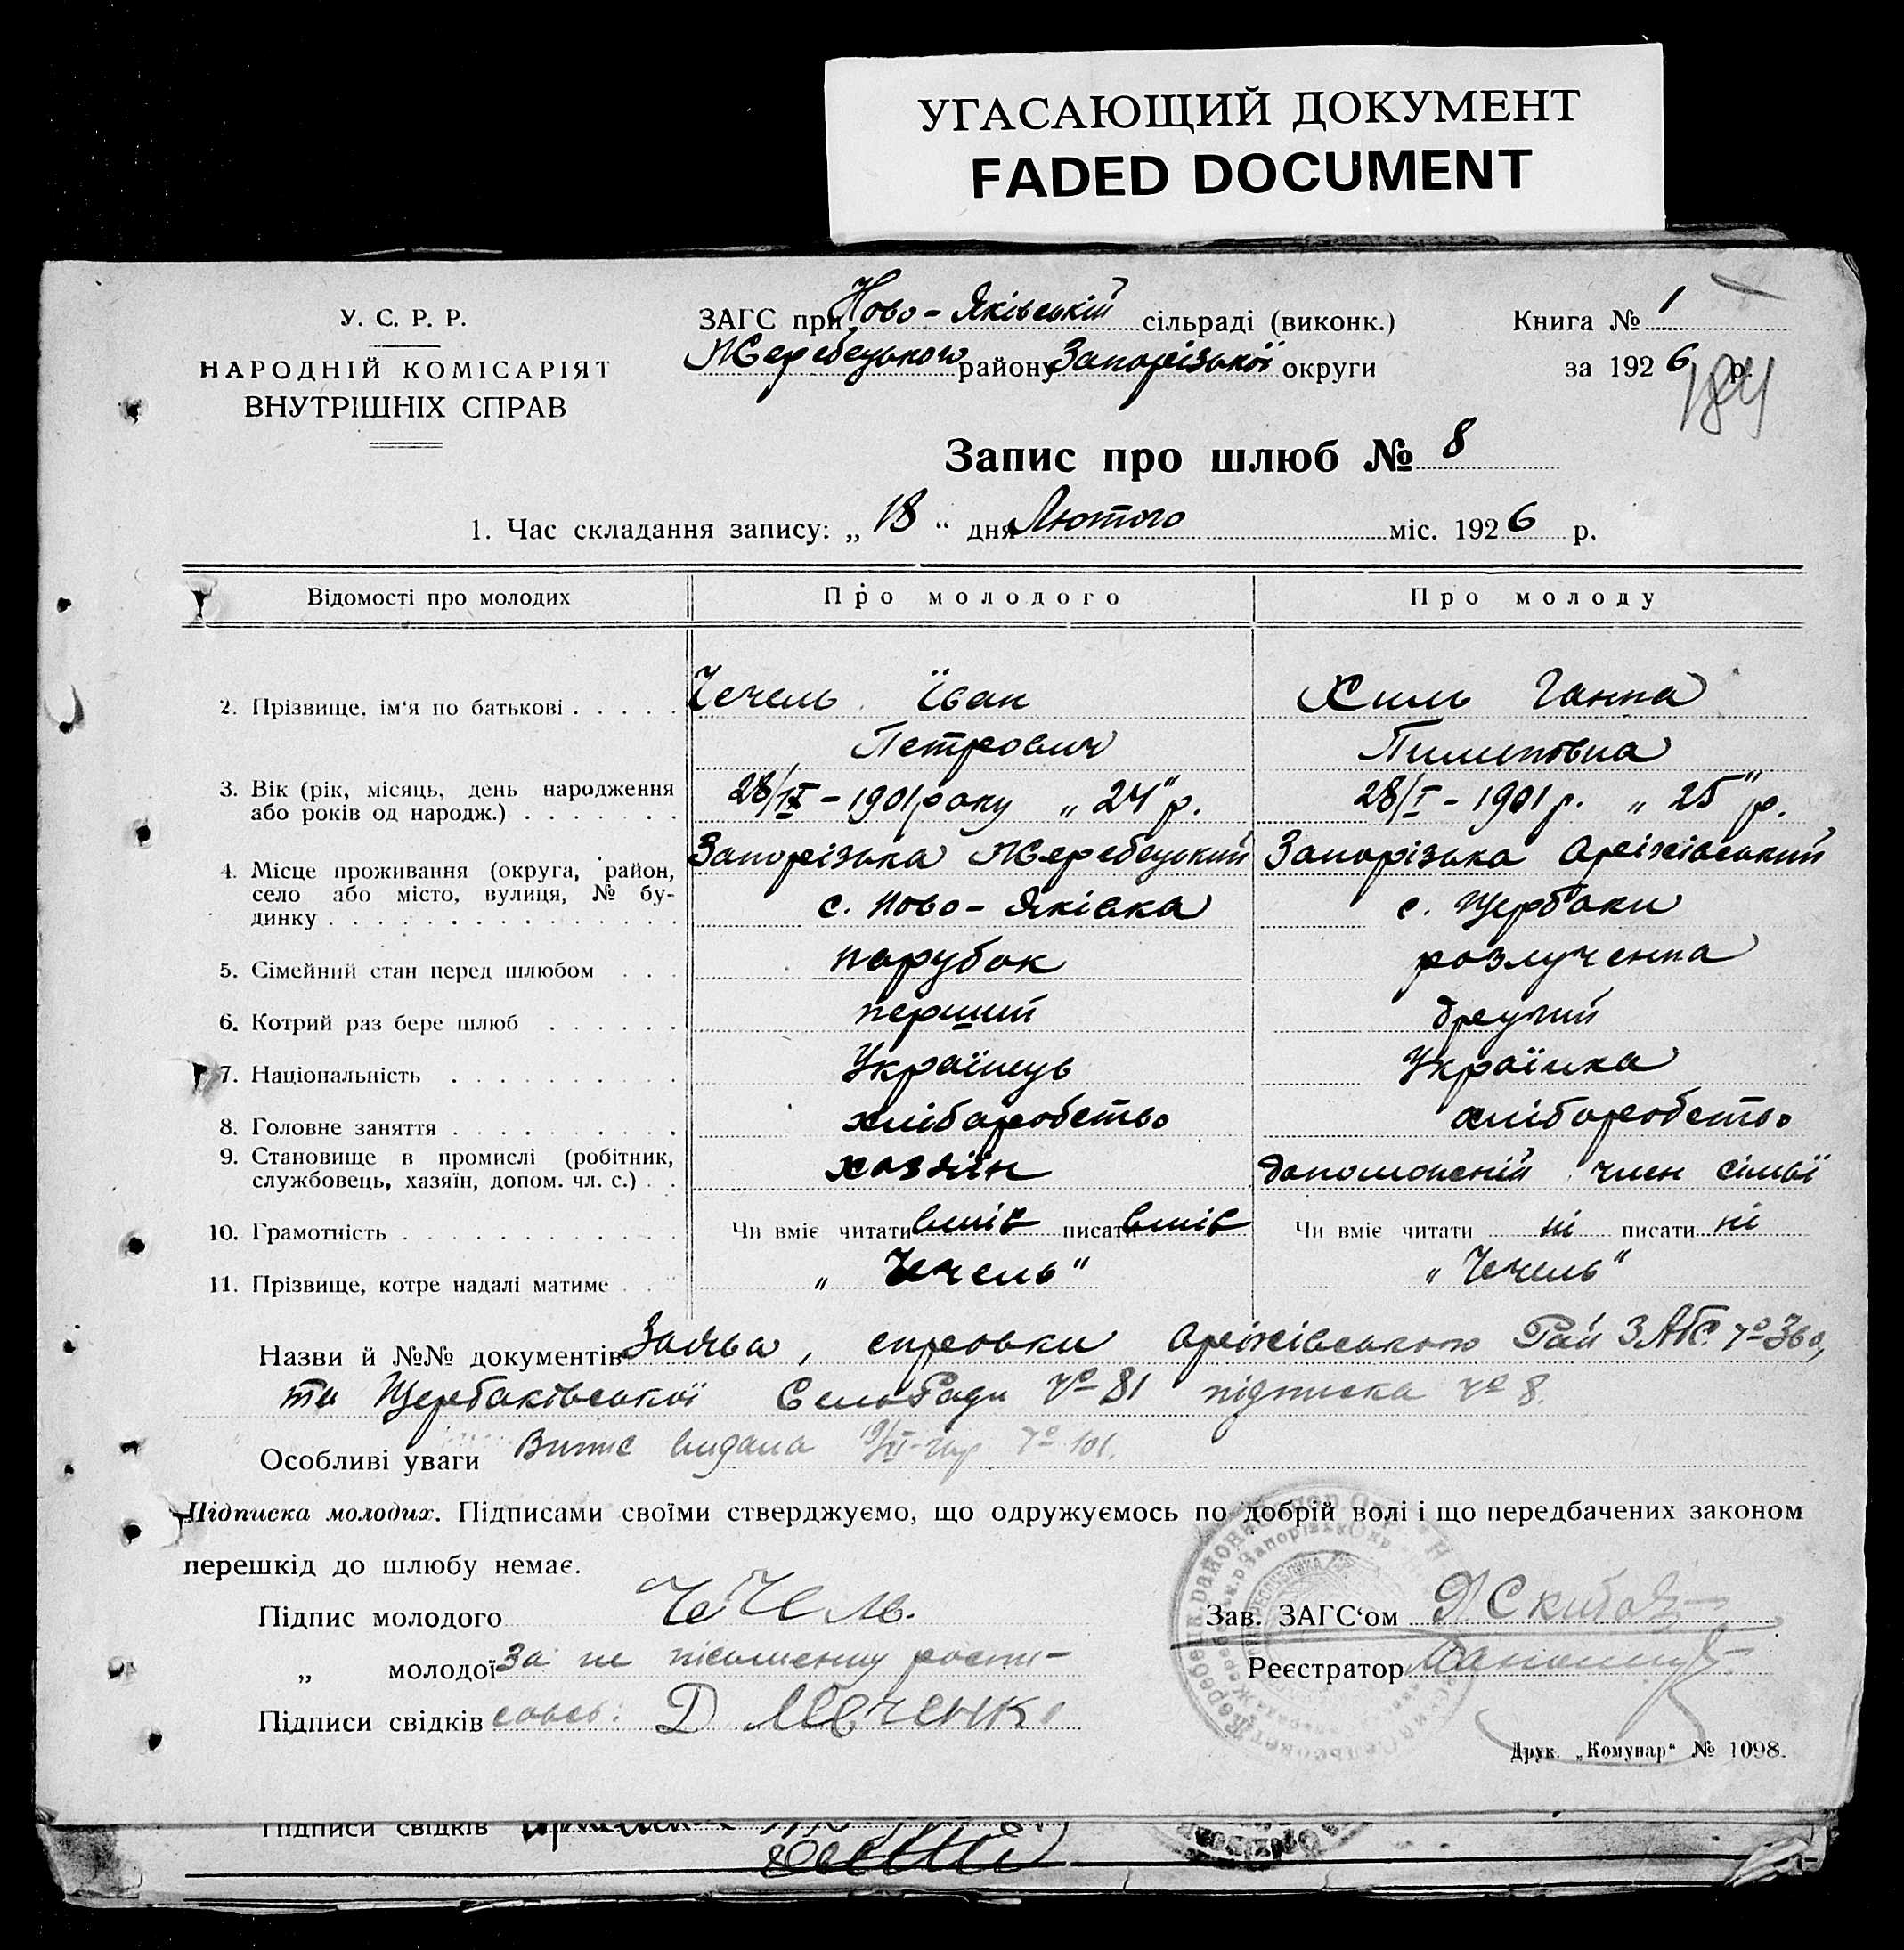 УГАСАЮЩИЙ ДОКУМЕНТ
FADED DOCUMENT
У. С. Р. Р.
НАРОДНІЙ КОМІСАРІЯТ
ВНУТРІШНІХ СПРАВ
ЗАГС при Ново-Яківській сільраді (виконк.)
Жеребецького району Запорізької округи
Книга № 1
за 1926 р.
184
Запис про шлюб № 8
1. Час складання запису: „ 18 “ дня Лютого міс. 1926 р.
Відомості про молодих Про молодого Про молоду
2. Прізвище, ім‘я по батькові Чечель Їван Хиль Ганна
Петрович Пилиповна
3. Вік (рік, місяць, день народження або років од народж.) 28/IX - 1901 року „ 24" р. 28/I - 1901 р. „ 25" р.
4. Місце проживання (округа, район, село або місто, вулиця, № будинку Запорізька Жеребецький Запорізька Оріхівський
с. Ново-Яківка с. Щербаки
5. Сімейний стан перед шлюбом парубок розлученна
6. Котрий раз бере шлюб перший другий
7. Національність Українець Українка
8. Головне заняття хліборобство хліборобство
9. Становище в промислі (робітник, службовець, хазяїн, допом. чл. с.) хозяїн допоможний член сімьї
10. Грамотність Чи вміє читати вміє писати вміє Чи вміє читати ні писати ні
11. Прізвище, котре надалі матиме „ Чечель" „ Чечель"
Назви й №№ документів Заява, справки Оріхівського Рай ЗАГС. № 360,
та Щербаківської СельРади № 81 підписка № 8.
Особливі уваги Витяг видана № 101.
Підписка молодих. Підписами своїми стверджуємо, що одружуємось по добрій волі і що передбачених законом
перешкід до шлюбу немає.
Підпис молодого Чечель.
„ молодої За не пісьменну
Підписи свідків
Зав. ЗАГС‘ом
Реєстратор
Друк. „Комунар“ № 1098.
Підписи свідків